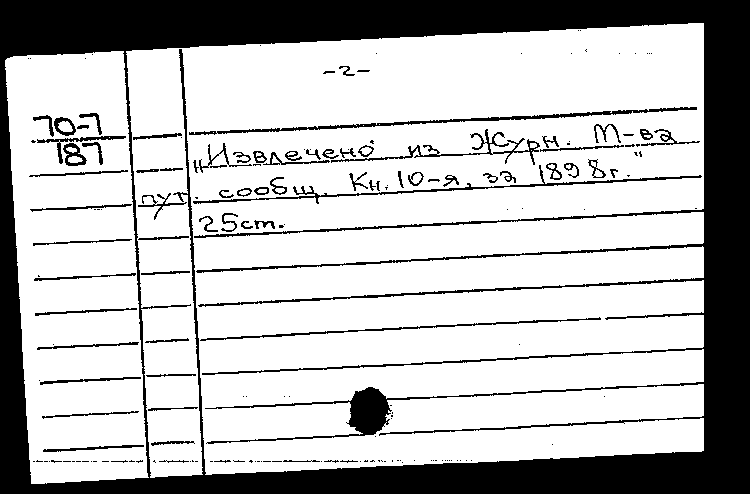 -2-
70-7
187
„Извлечено из Журн. М-ва
пут. сообщ. Кн. 10-я, за 1898г."
25см.